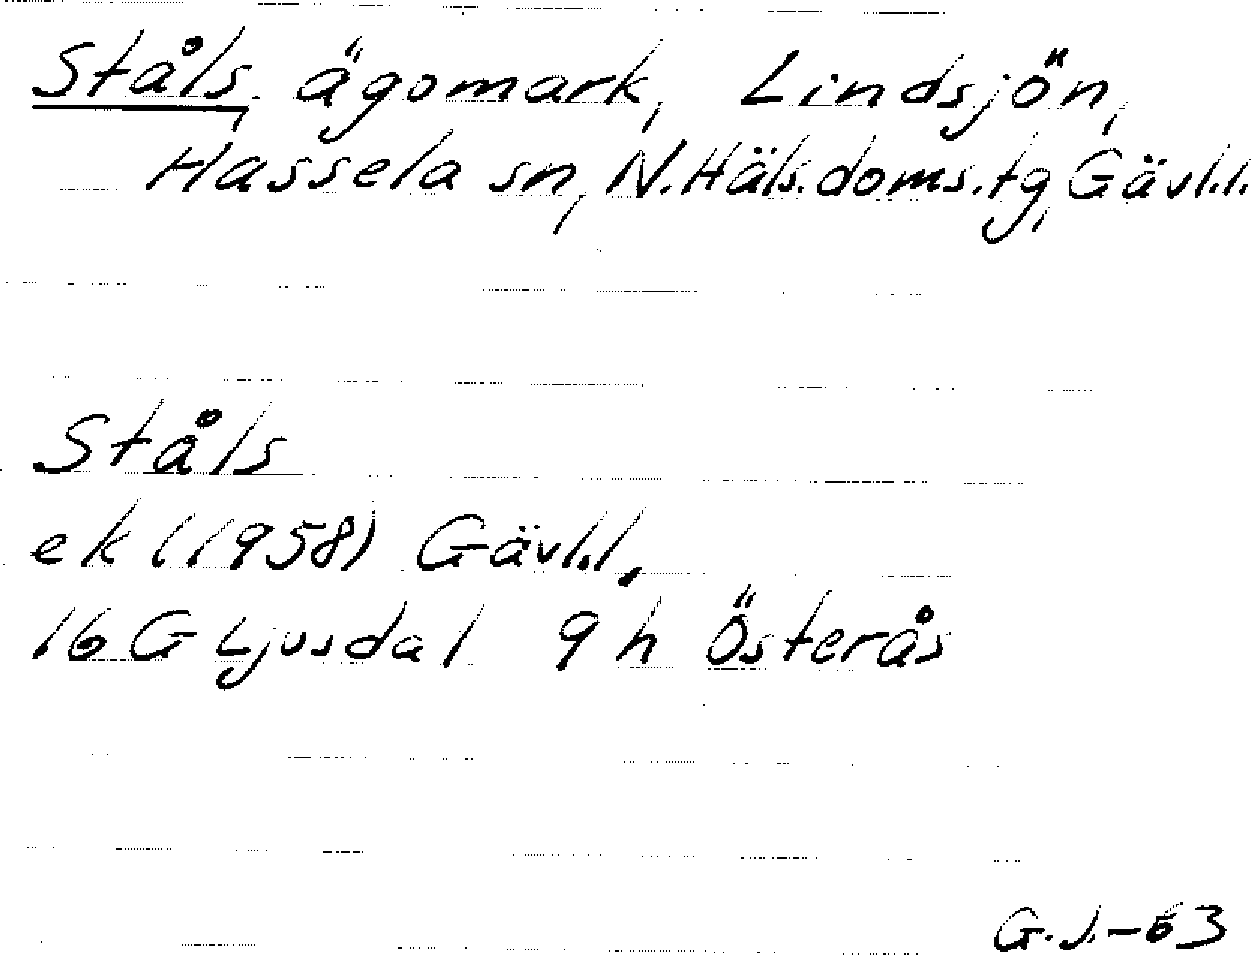 Ståls, ägomark, Lindsjön,
Hassela sn, N.Häls.doms.tg, Gävl.l.
Ståls
ek (1958) Gävl.l.
16 G Ljusdal 9 h Österås
G.J.-63